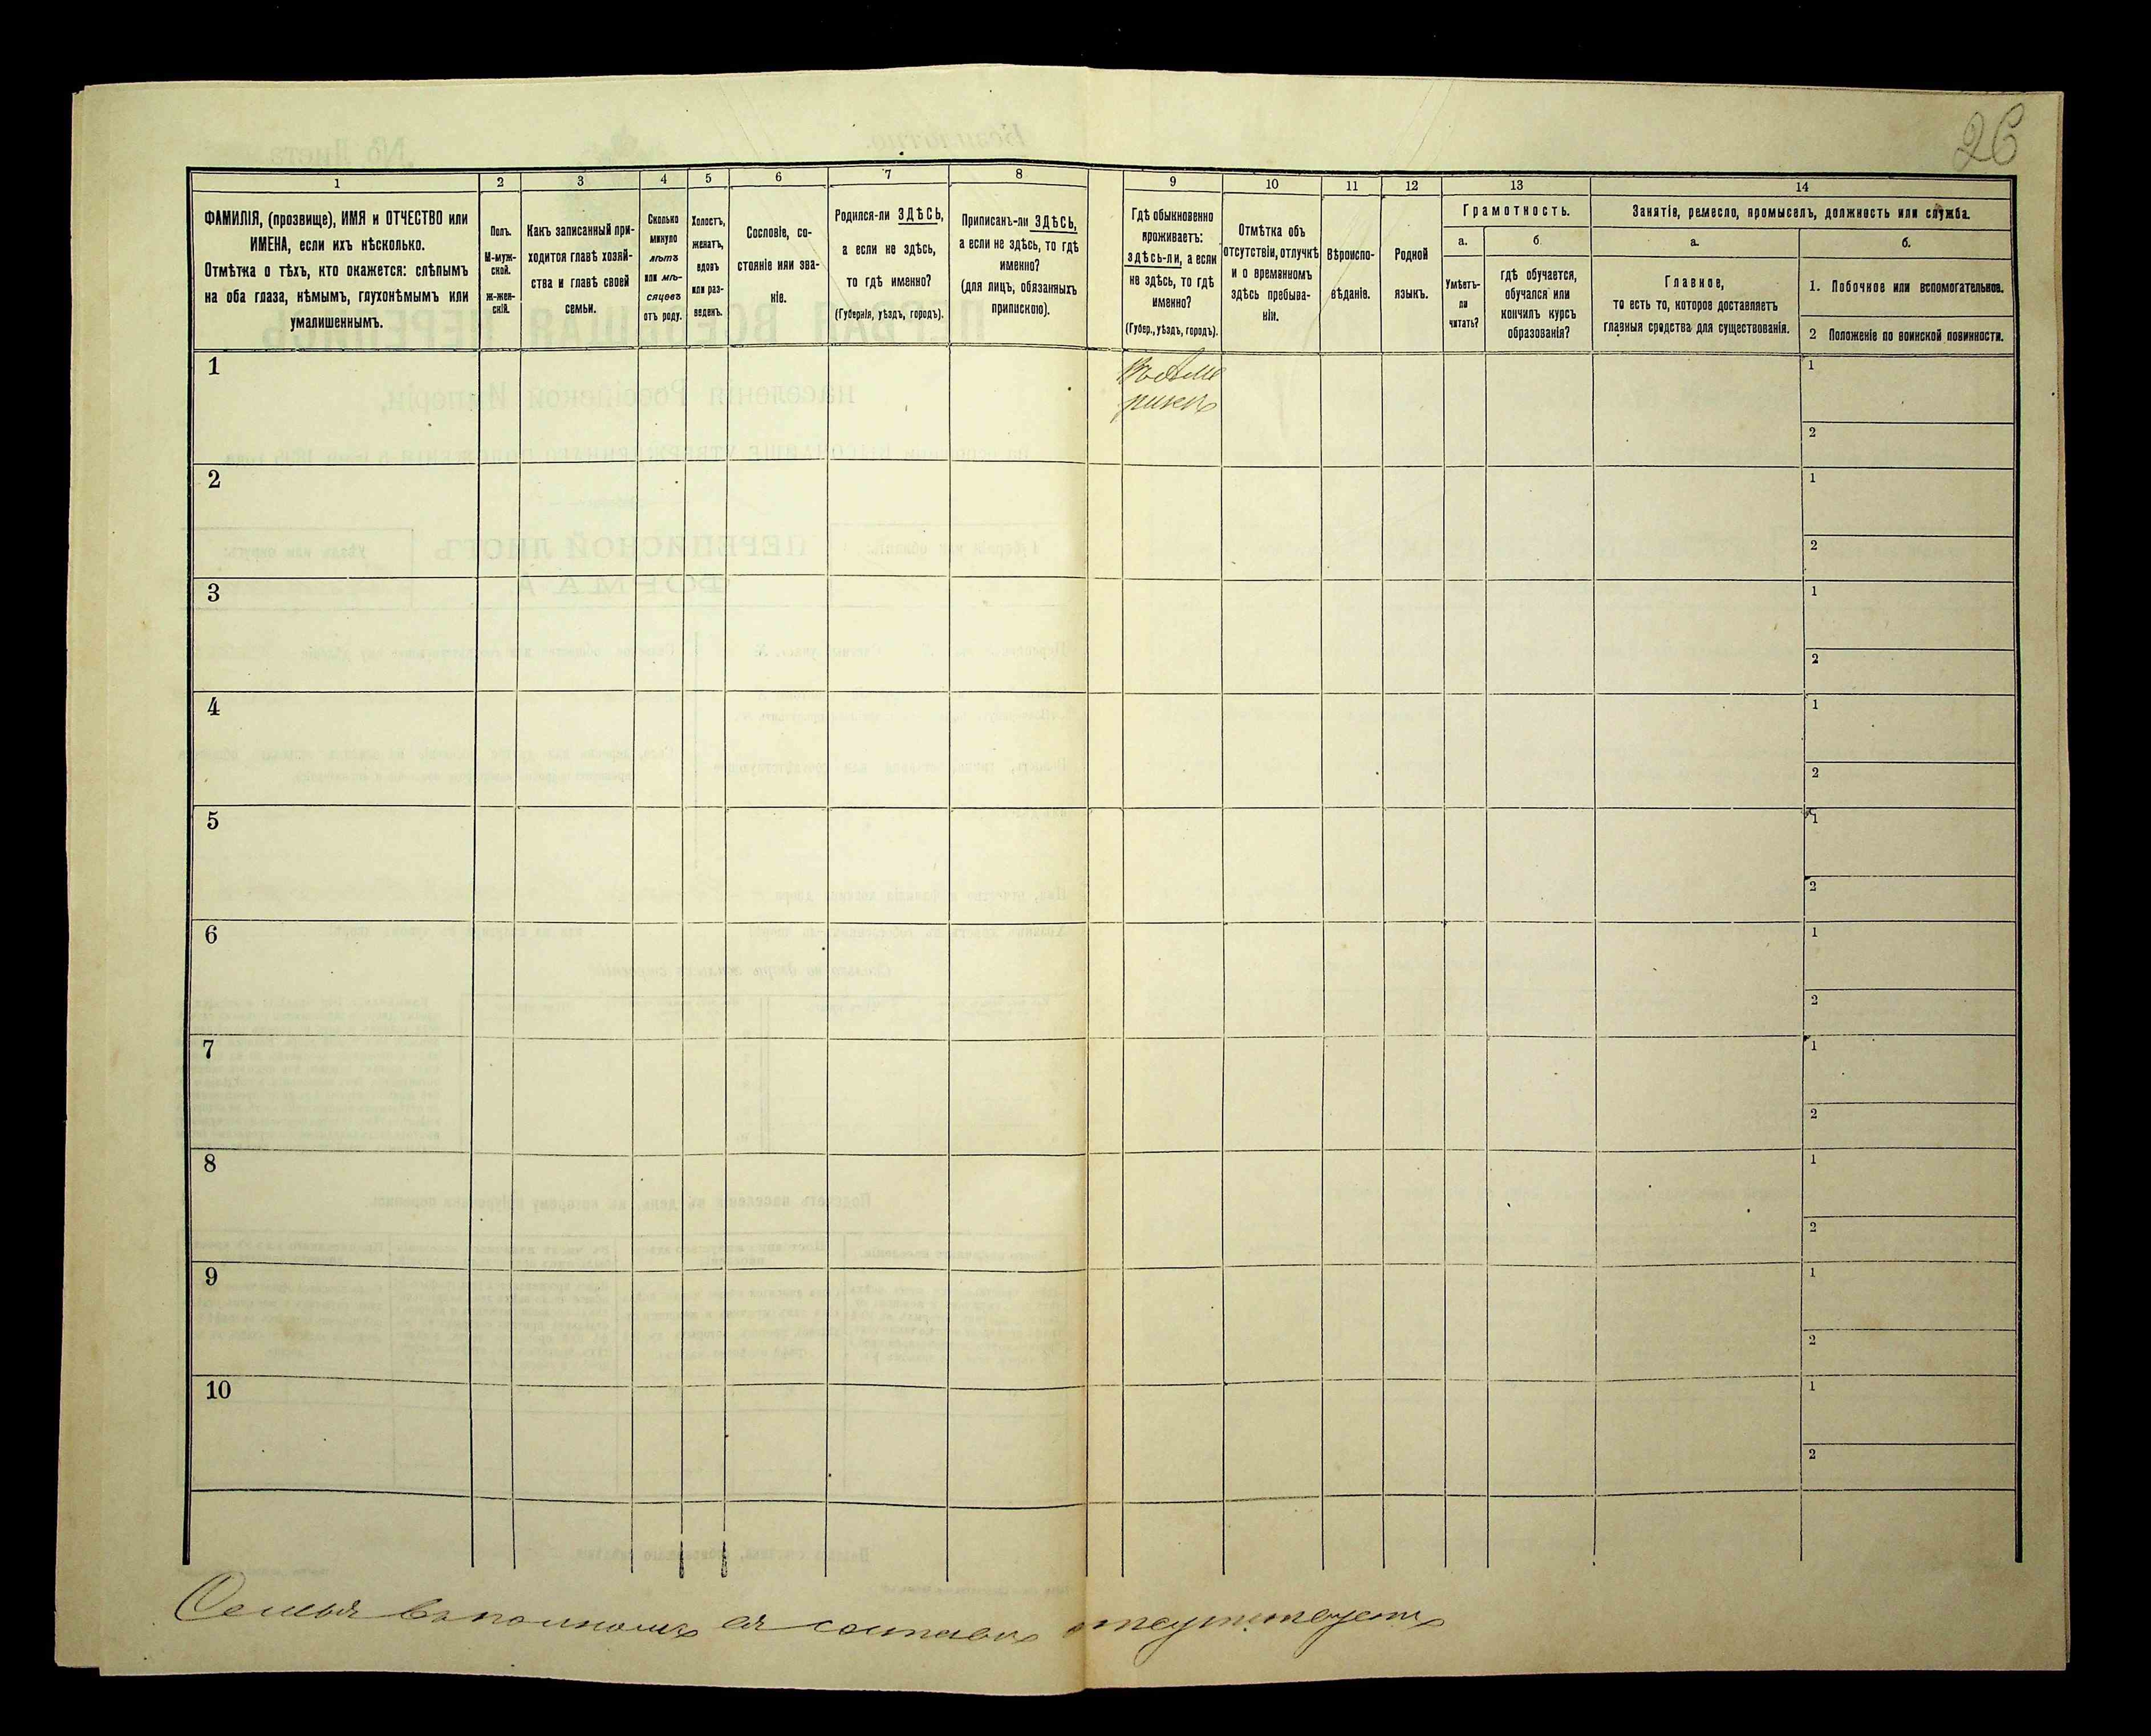 26
1 2 3 4 5 6 7 8 9 10 11 12 13 14
ФАМИЛІЯ, (прозвище), ИМЯ и ОТЧЕСТВО или
ИМЕНА, если ихъ нѣсколько.
Отмѣтка о тѣхъ, кто окажется: слѣпымъ
на оба глаза, нѣмымъ, глухонѣмымъ или
умалишеннымъ.
Полъ.
М-муж-
ской.
ж-жен-
скій.
Какъ записанный при-
ходится главѣ хозяй-
ства и главѣ своей
семьи.
Сколько
минуло
лѣтъ
или мѣ-
сяцевъ
отъ роду.
Холостъ,
женатъ,
вдовъ
или раз-
веденъ.
Сословіе, со-
стояніе или зва-
ніе.
Родился-ли ЗДѢСЬ,
а если не здѣсь,
то гдѣ именно?
(Губернія, уѣздъ, городъ).
Приписанъ-ли ЗДѢСЬ,
а если не здѣсь, то гдѣ
именно?
(для лицъ, обязанныхъ
припискою).
Гдѣ обыкновенно
проживаетъ:
здѣсь-ли, а если
не здѣсь, то гдѣ
именно?
(Губер., уѣздъ, городъ).
Отмѣтка объ
отсутствіи, отлучкѣ
и о временномъ
здѣсь пребыва-
ніи.
Вѣроиспо-
вѣданіе.
Родной
языкъ.
Грамотность.
а.
Умѣетъ-
ли
читать?
б
гдѣ обучается,
обучался или
кончилъ курсъ
образованія?
Занятіе, ремесло, промыселъ, должность или служба.
а.
Главное,
то есть то, которое доставляетъ
главныя средства для существованія.
б.
1. Побочное или вспомогательное.
2 Положеніе по воинской повинности.
1
Въ Аме
рикѣ
1
2
2
1
2
3
1
2
4
1
2
5
1
2
6
1
2
7
1
2
8
1
2
9
1
2
10
1
2
Семья въ полномъ ея составѣ отсутствуетъ